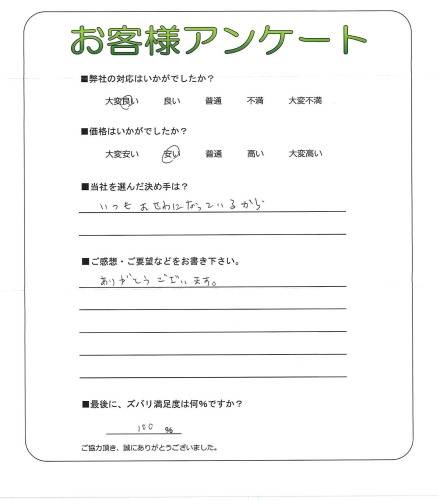 お客様アンケート
■弊社の対応はいかがでしたか？
大変良い 良い 普通 不満 大変不満
■価格はいかがでしたか？
大変安い 安い 普通 高い 大変高い
■当社を選んだ決め手は？
いつもおせわになっているから
■ご感想・ご要望などをお書き下さい。
ありがとうございます。
■最後に、ズバリ満足度は何%ですか？
100 %
ご協力頂き、誠にありがとうございました。